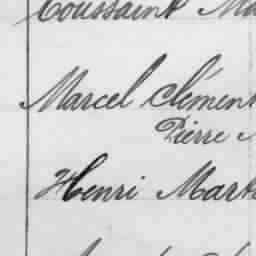 Toussaint Ma
Marcel Clément
Pierre
Henri Mart